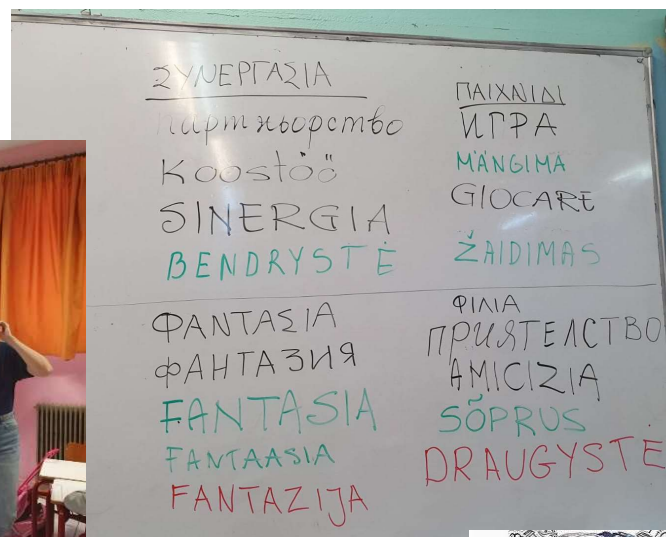 ΣΥΝΕΡΓΑΣΙΑ
Партньорство
Koostöö
SINERGIA
BENDRYSTĖ
ΠΑΙΧΝΙΔΙ
ИГРА
MÄNGIMA
GIOCARE
ŽAIDIMAS
ΦΑΝΤΑΣΙΑ
ФАНТАЗИЯ
FANTASIA
FANTAASIA
FANTAZIJA
ΦΙΛΙΑ
ПРИЯТЕЛСТВО
AMICIZIA
SÕPRUS
DRAUGYSTE